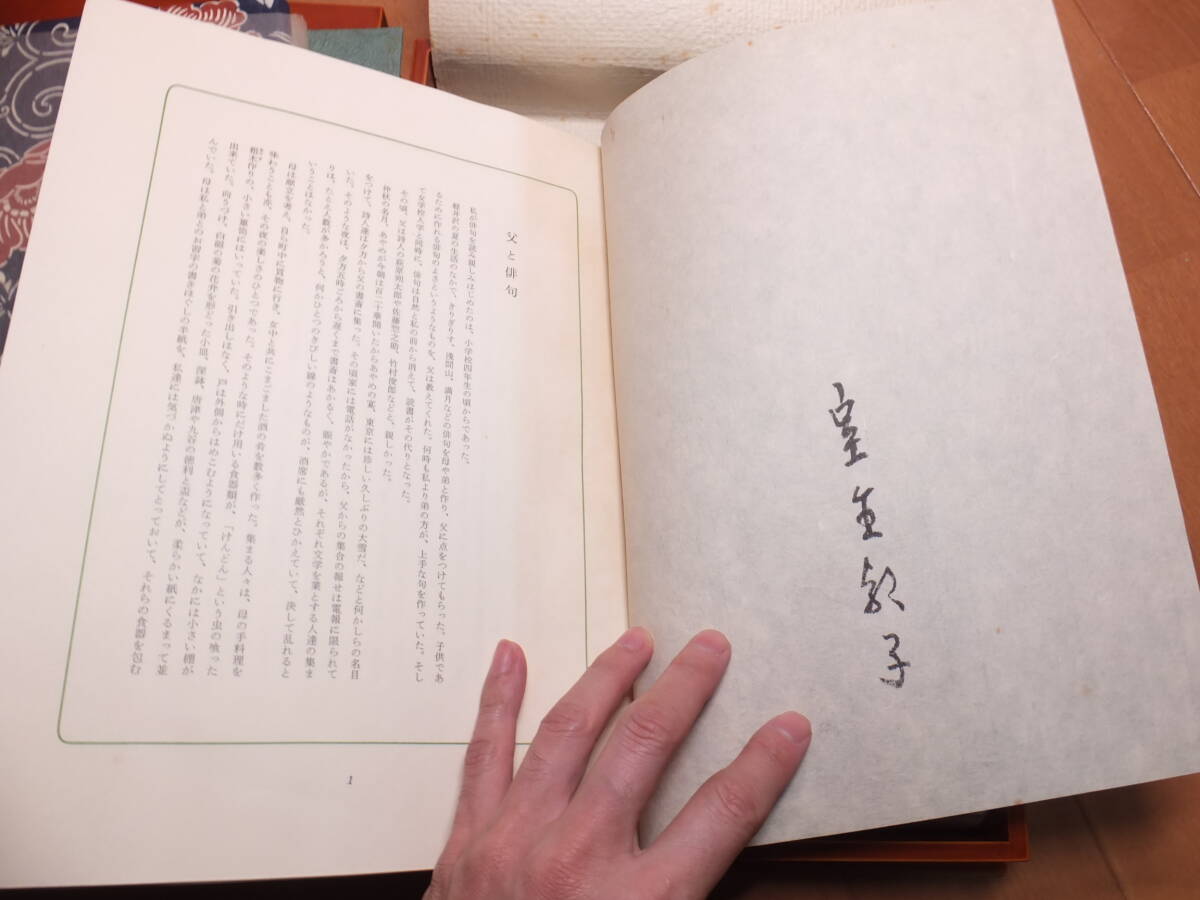 室生朝子
父と俳句
私が俳句を読み親しみはじめたのは、小学校四年生の頃からであった。
軽井沢の夏の生活のなかで、きりぎりす、浅間山、満月などの俳句を母や弟と作り、父に点をつけてもらった。子供であ
るために作れる俳句のよさというようなものを、父は教えてくれた。何時も私より弟の方が、上手な句を作っていた。そし
て女学校入学と同時に、俳句は自然と私の前から消えて、読書がその代りとなった。
その頃、父は詩人の萩原朔太郎や佐藤惣之助、竹村俊郎などと、親しかった。
仲秋の名月、あやめが今朝は百二十華開いたからあやめの宴、東京には珍しい久しぶりの大雪だ、などと何かしらの名目
をつけて、詩人達は夕方から父の書斎に集った。その頃家には電話がなかったから、父からの集合の報せは電報に限られて
いた。そのような夜は、夕方五時ごろから遅くまで書斎はあかるく、賑やかであるが、それぞれ文学を業とする人達の集ま
りは、たとえ人数が多かろうと、何かひとつのきびしい線のようなものが、酒席にも厳然とひかえていて、決して乱れると
いうことはなかった。
母は献立を考え、自ら町中に買物に行き、女中と共にこまごました酒の肴を数多く作った。集まる人々は、母の手料理を
味わうことも亦、その夜の楽しさのひとつであった。そのような時にだけ用いる食器類が、「けんどん」という虫の喰った
粗木作りの、小さい箪笥にはいっていた。引き出しはなく、戸は外側からはめこむようになっていて、なかには小さい棚が
出来ていた。向うづけ、白磁の菊の花弁を形どった小皿、深鉢、唐津や九谷の徳利と盃などが、柔らかい紙にくるまって並
んでいた。母は私と弟とのお習字の書きほぐしの半紙を、私達には気づかぬようにしてとっておいて、それらの食器を包む
1